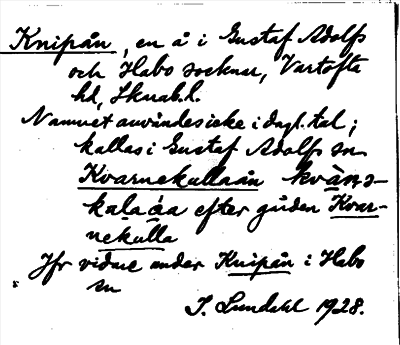 Knipån, en å i Gustaf Adolfs
och Habo socknar, Vartofta
hd, Skrab.l.
Namnet användes icke i dagl. tal;
kallas i Gustaf Adolfs sn
Kvarnekullaån
kalaȧa efter gården Kvar-
nekulla
Jfr vidare under Knipån i Habo
sn
I. Lundahl 1928.